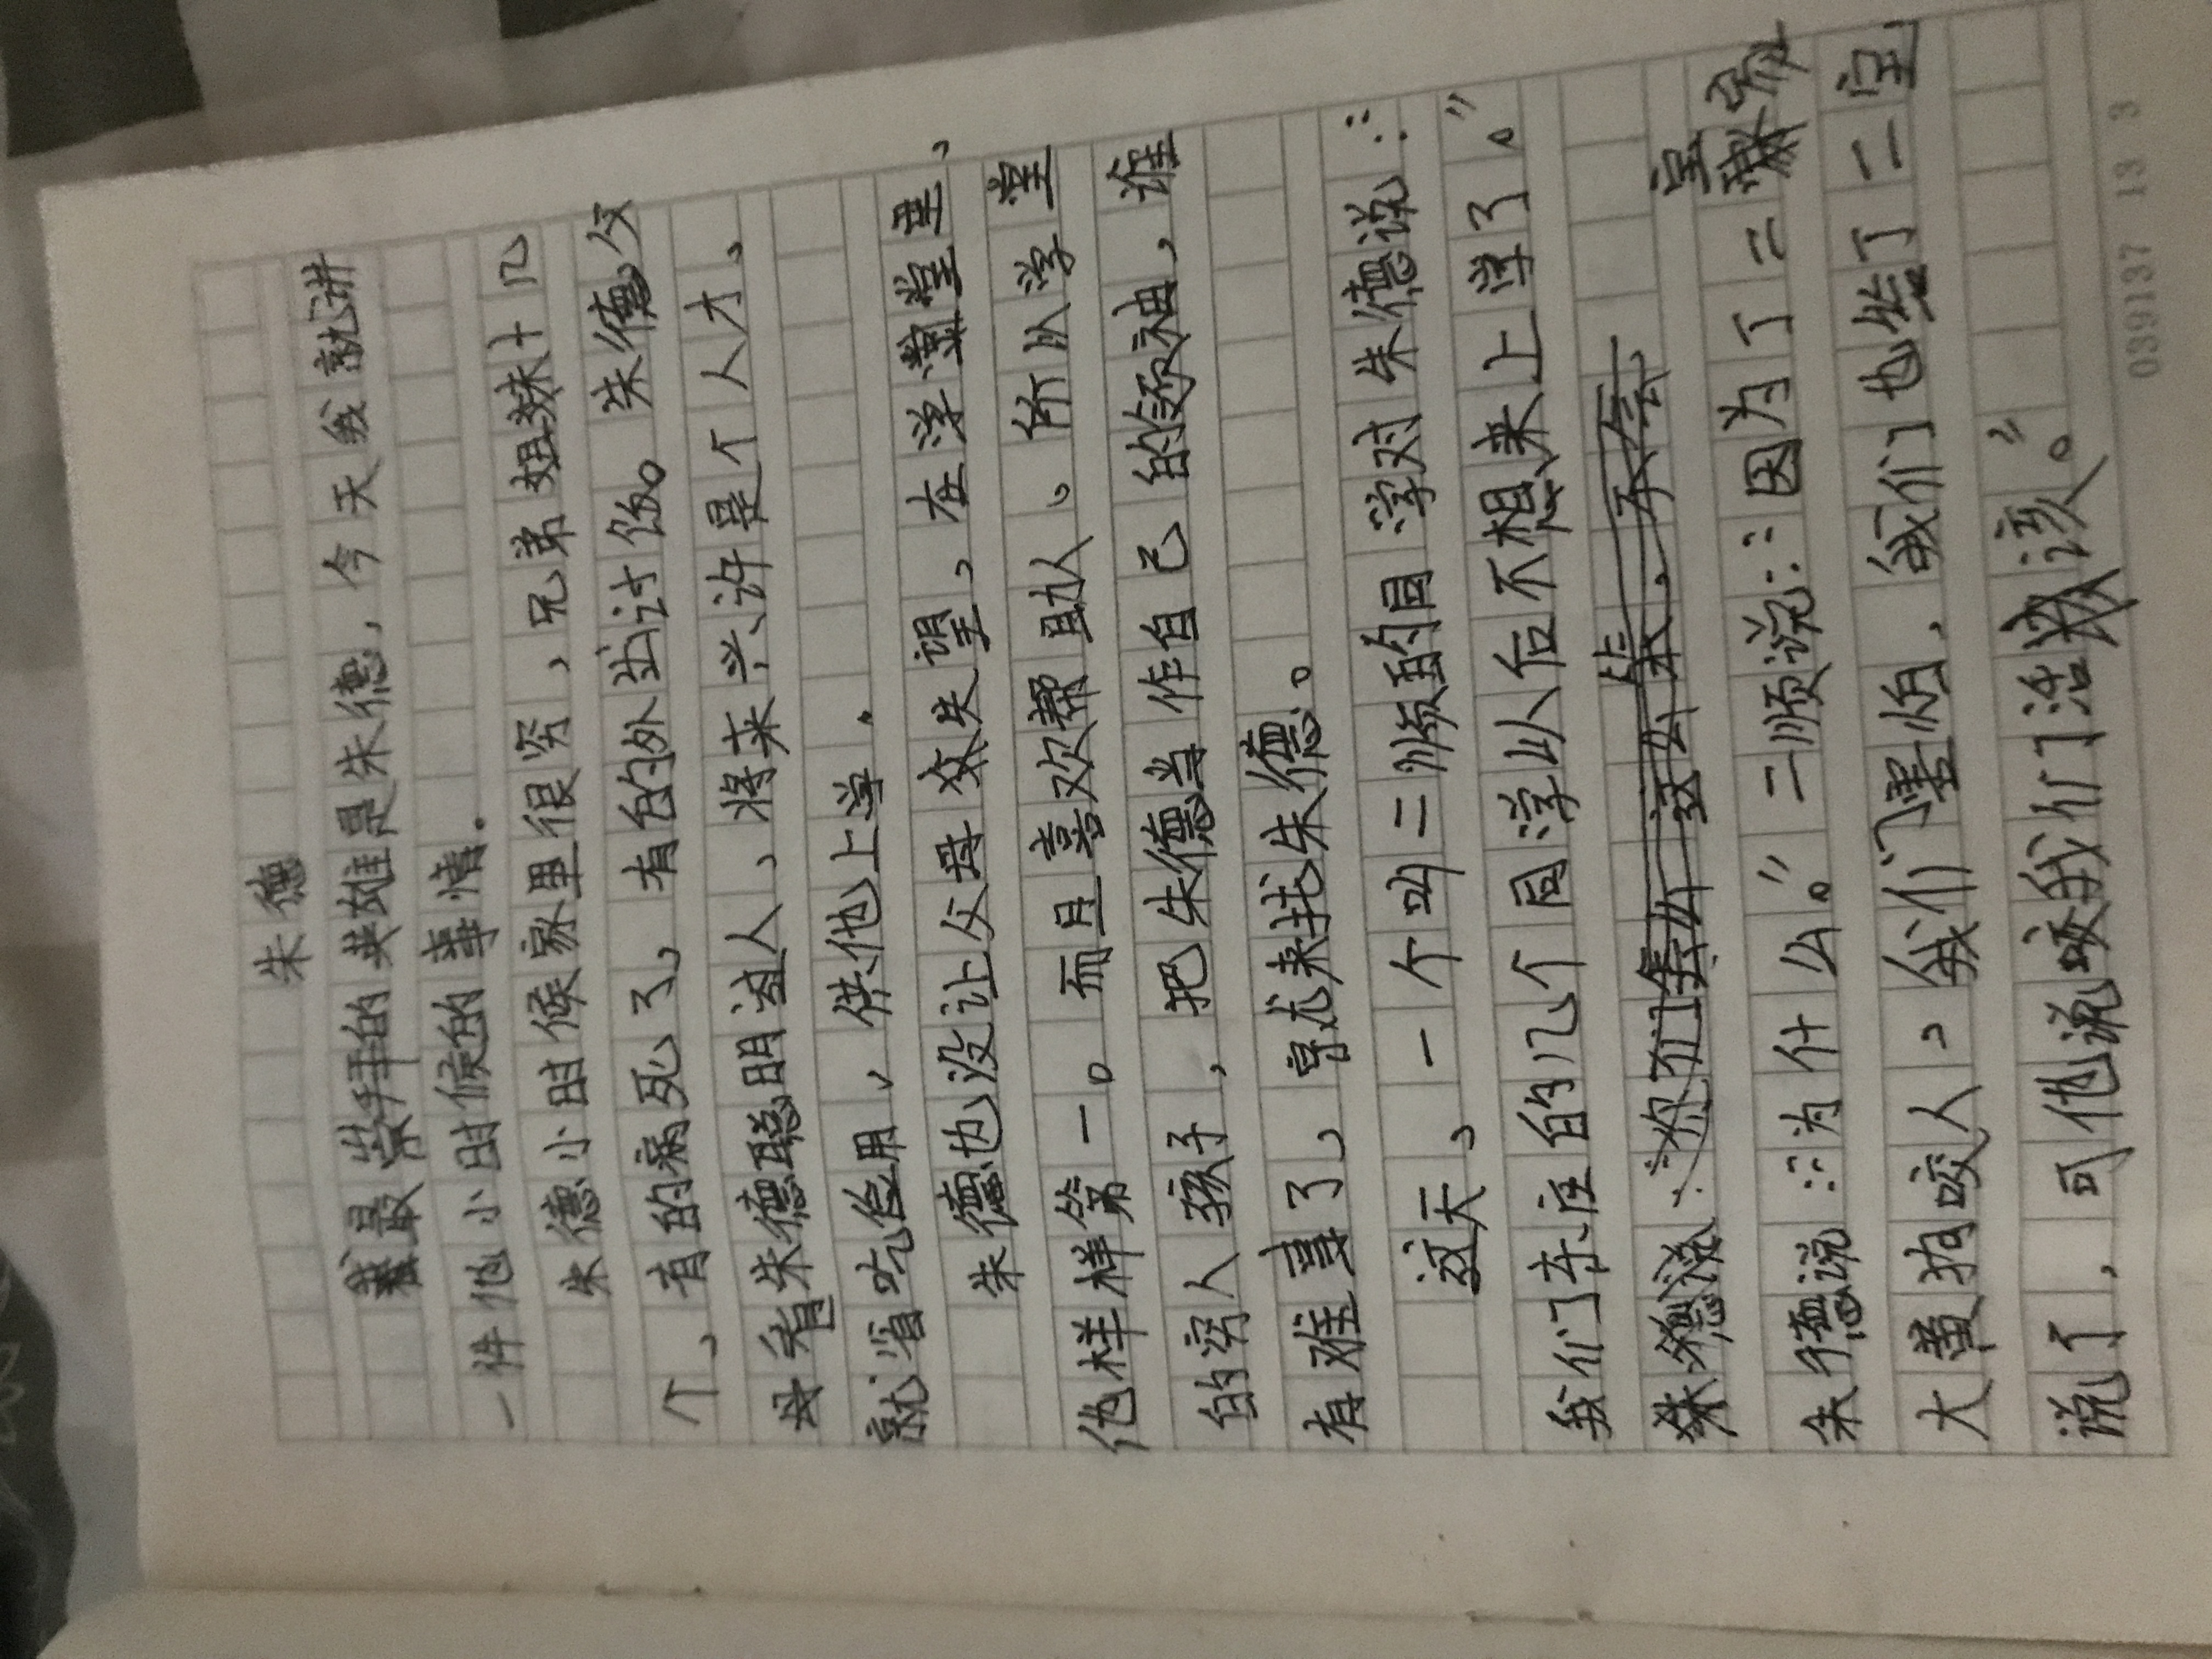 朱德
我最崇拜的英雄是朱德，今天我就讲
一件他小时候的事情。
朱德小时候家里很穷，兄弟姐妹十几
个，有的病死了，有的外出讨饭。朱德父
母看朱德聪明过人，将来兴许是个人才，
就省吃俭用，供他上学。
朱德也没让父母失望，在学堂里，
他样样第一。而且喜欢帮助人。所以学堂
的穷人孩子，把朱德当作自己的领袖，谁
有难事了，就来找朱德。
这天，一个叫二顺的同学对朱德说：
我们东庄的几个同学以后不想来上学了。”
朱德说：“为什么。”二顺说：“因为丁二家
大黄狗咬人，我们害怕，我们也给丁二宝
说了，可他说咬我们活该。”
039137 13 3